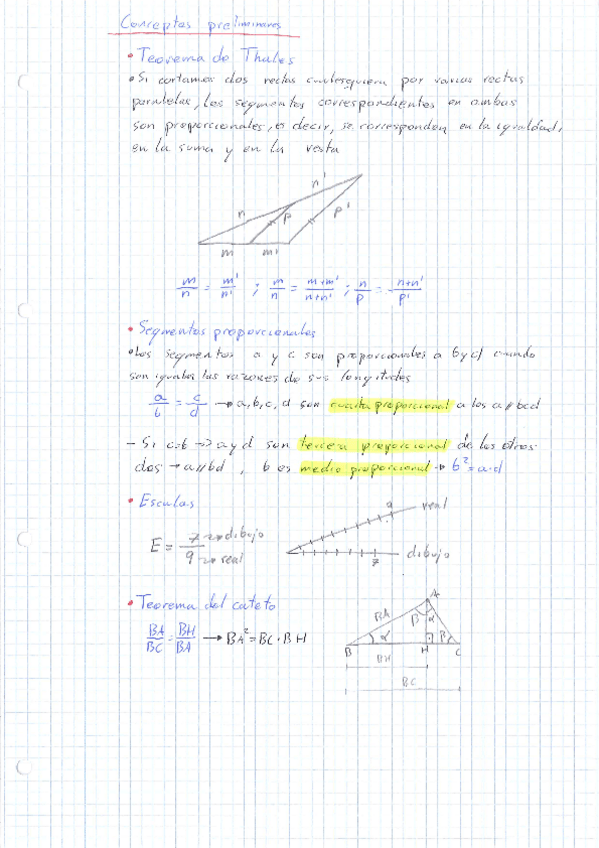 Conceptos preliminares
• Teorema de Thales
• Si cortamos dos rectas cualesquiera por varias rectas
paralelas, los segmentos correspondientes en ambas
son proporcionales, es decir, se corresponden en la igualdad,
en la suma y en la resta
n'
n
p
p'
m m'
m/n = m'/n' ; m/n = m+m'/n+n' ; n/p = n+n'/p'
• Segmentos proporcionales
• Los segmentos a y c son proporcionales a b y d cuando
son iguales las razones de sus longitudes
a/b = c/d → a, b, c, d son cuarta proporcional a los a//bcd
- Si c=b → a y d son tercera proporcional de los otros
dos → a//bd, b es media proporcional → b²=a·d
• Escalas
E = 7→dibujo/9→real
9 real
7 dibujo
• Teorema del cateto
BA/BC = BH/BA → BA²=BC·BH
A
BA β α
B α H β C
BH
BC